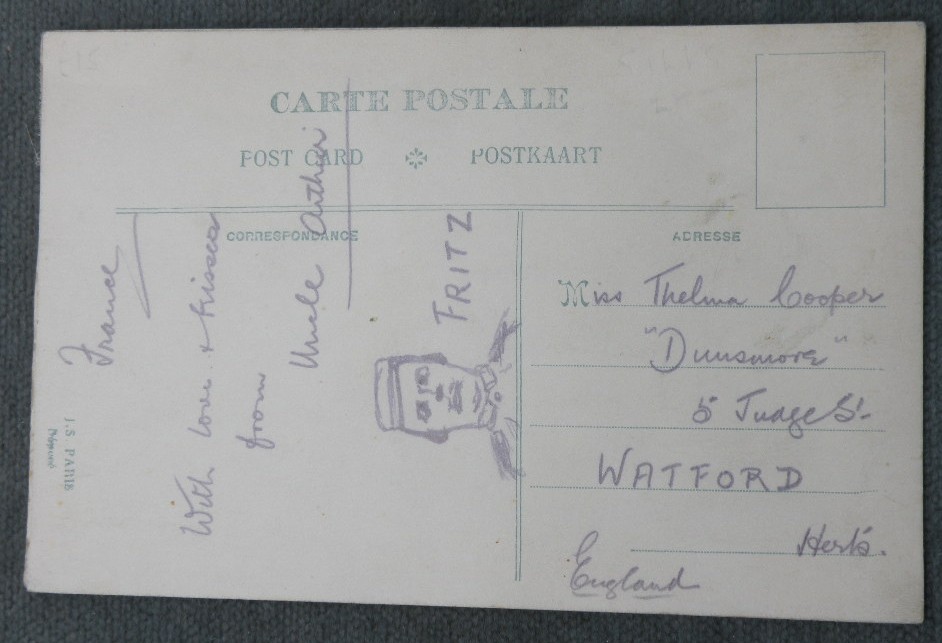 CARTE POSTALE
POST CARD POSTKAART
CORRESPONDANCE
ADRESSE
France
With love & kisses
from
Uncle Arthur
FRITZ
Miss Thelma Cooper
"Dunsmore"
5 Judge St.
WATFORD
Herts.
England
I.S PARIS